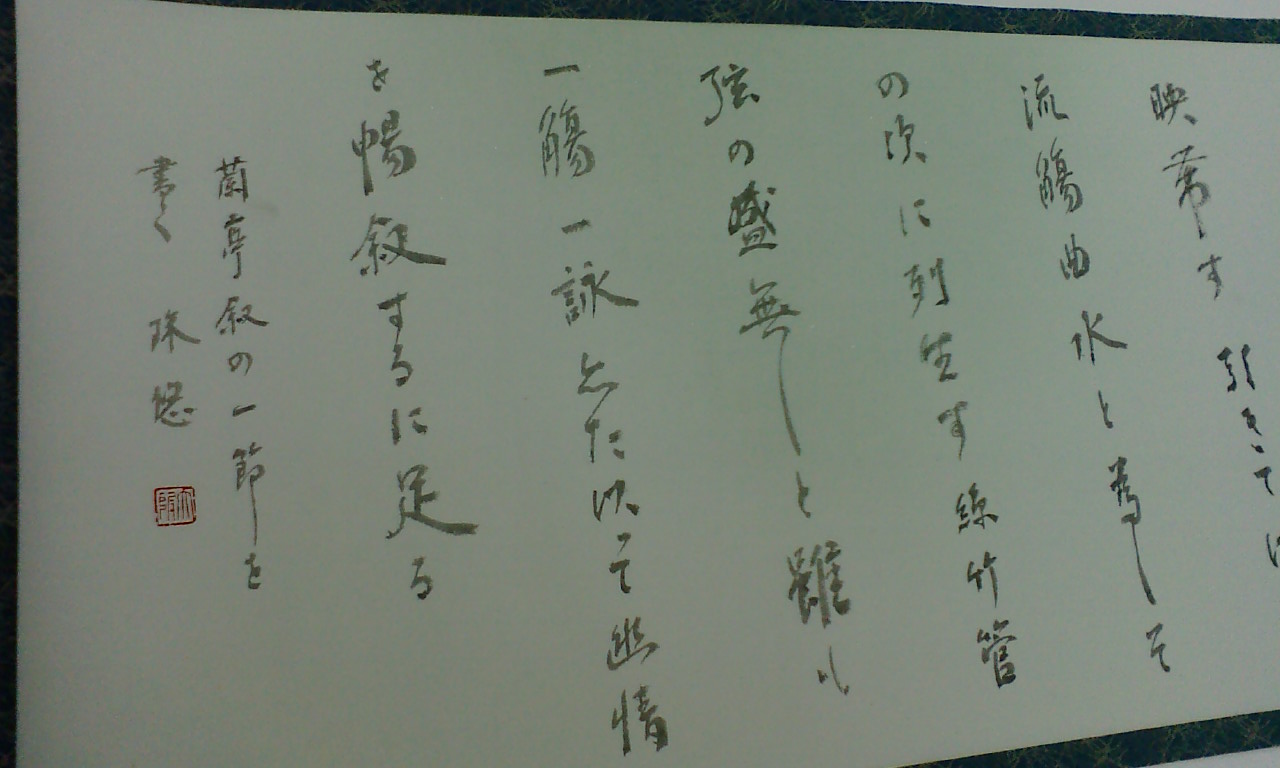 映帯す 引きて
流觴曲水と為しそ
の次に列坐す絲竹管
弦の盛無しと雖も
一觴一詠亦た以て幽情
を暢叙するに足る
蘭亭叙の一節を
書く 珠悠